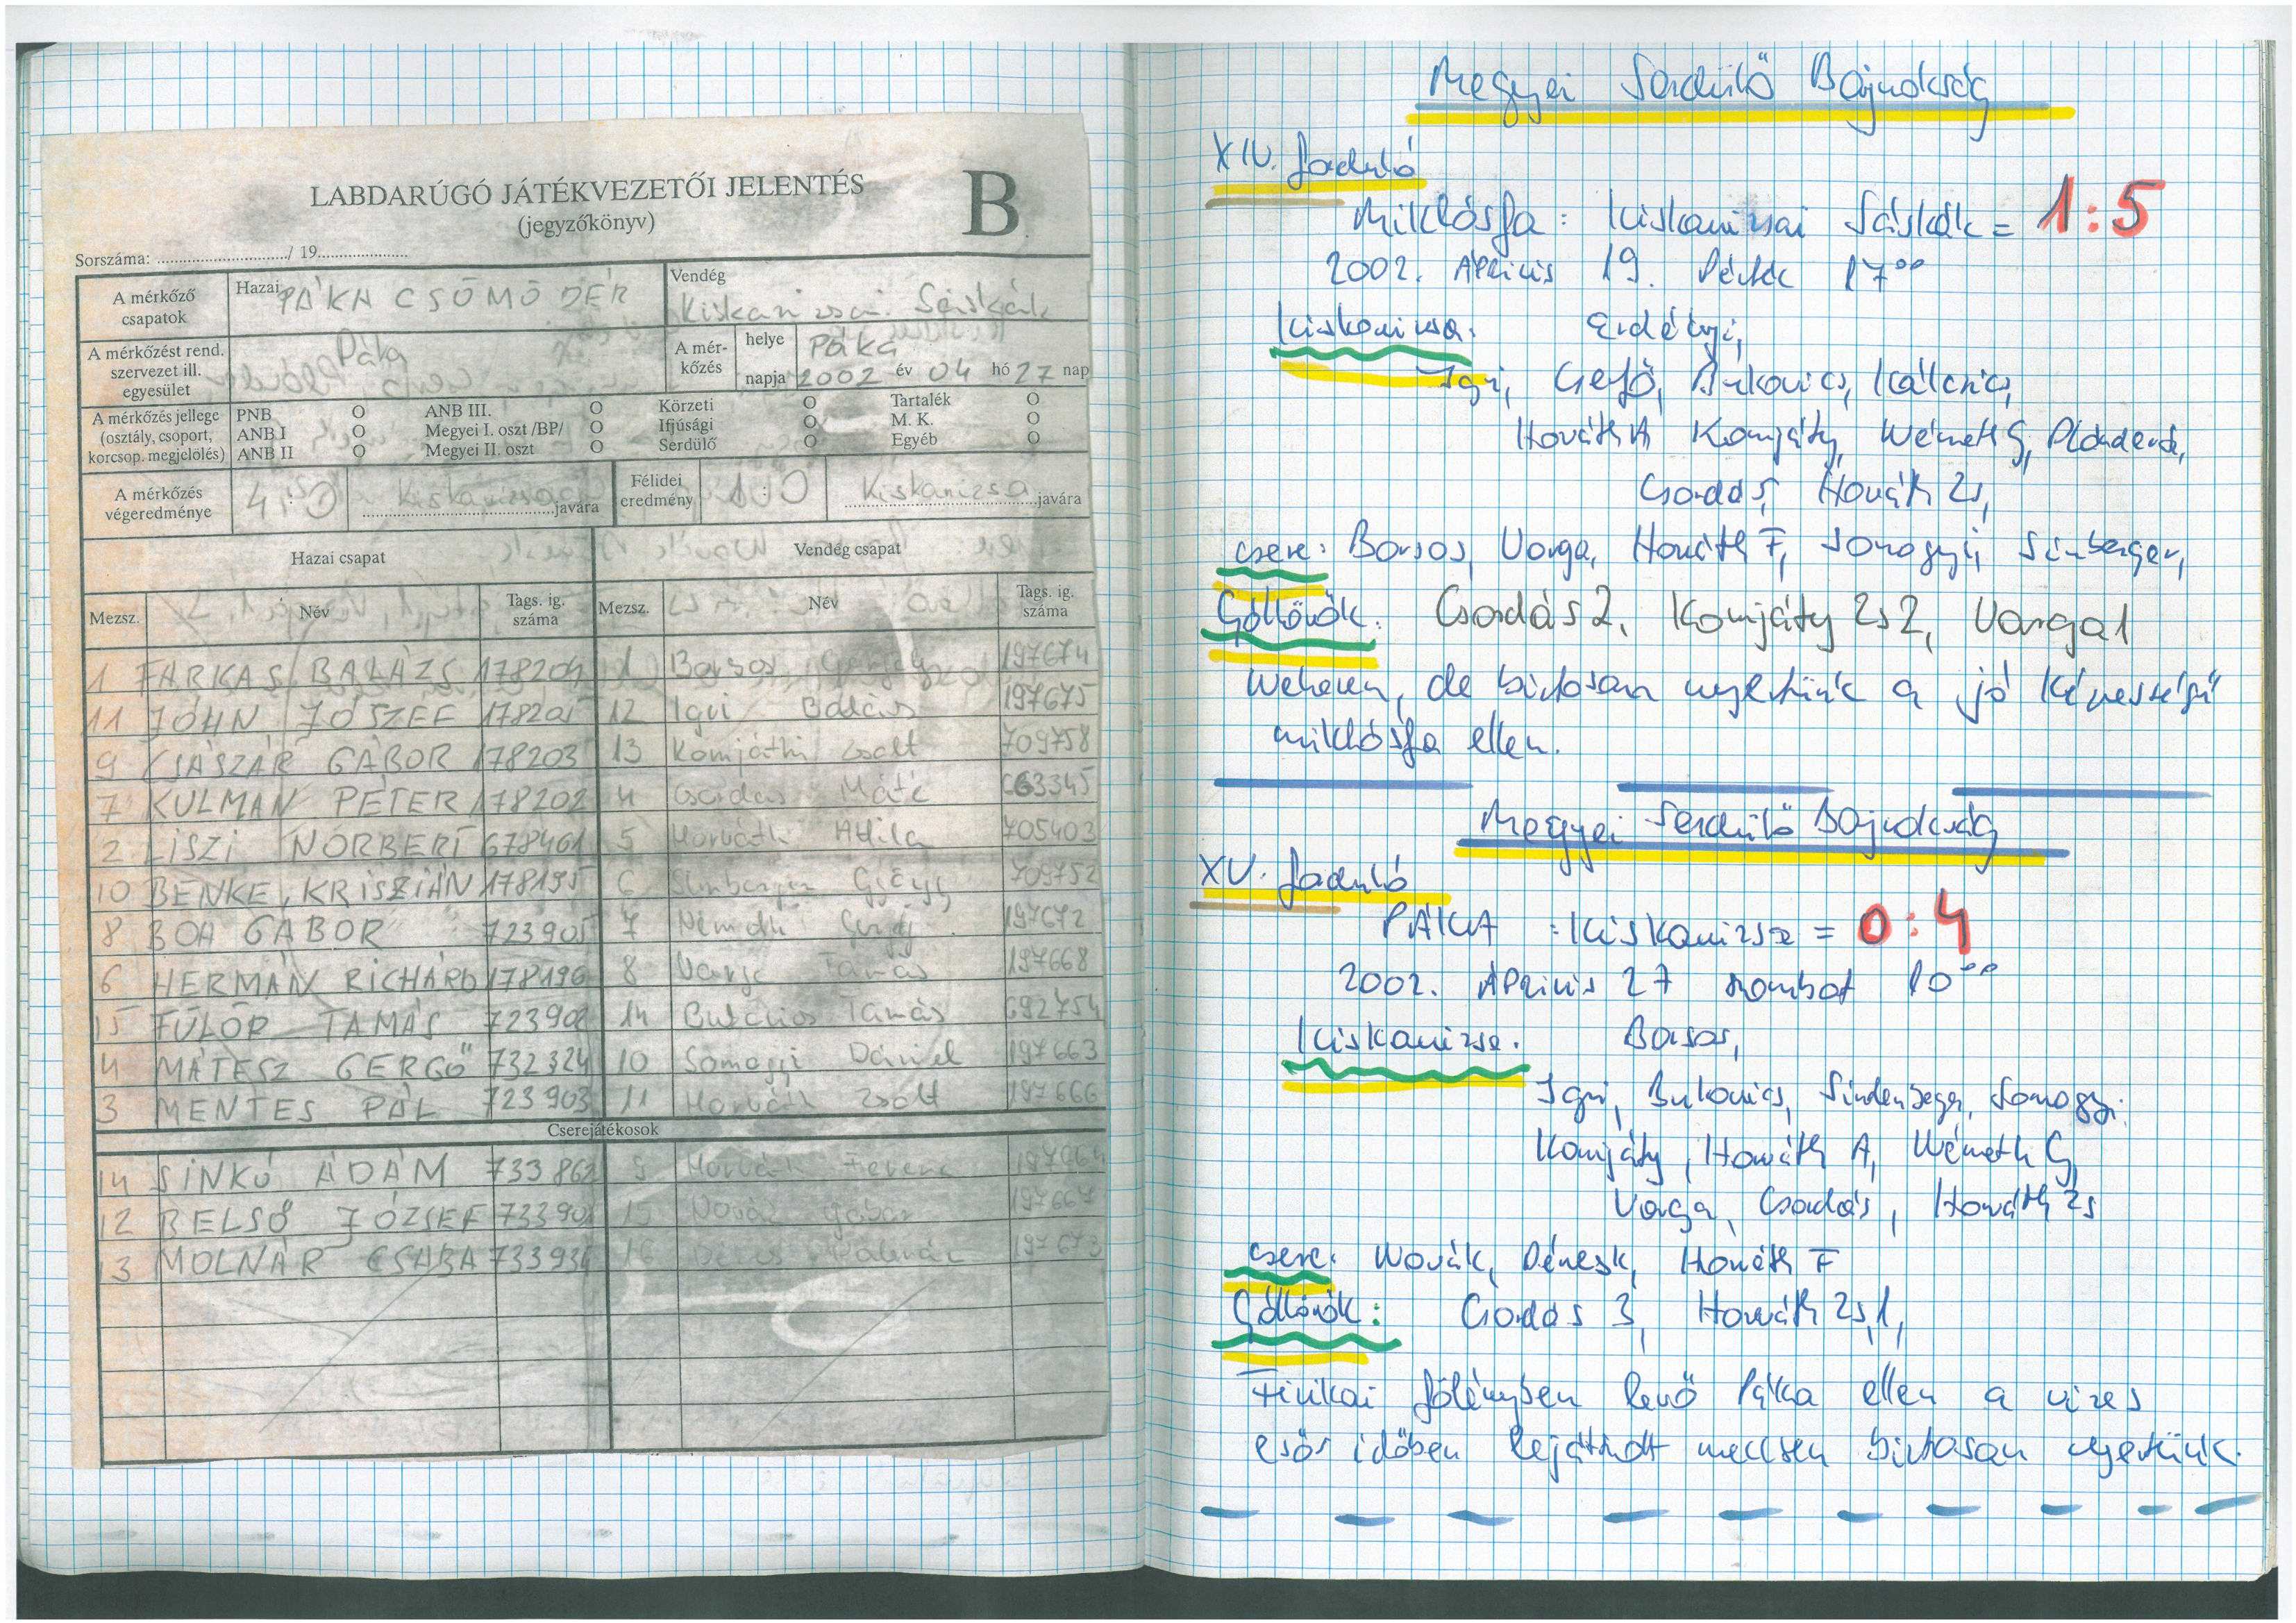 LABDARÚGÓ JÁTÉKVEZETŐI JELENTÉS
(jegyzőkönyv)
B
Sorszáma: ............................../ 19.....................
A mérkőző csapatok
Hazai PÁKA CSÖMÖDÉR
Vendég Kiskanizsai Sáskák
A mérkőzést rend. szervezet ill. egyesület
Páka
A mér-kőzés
helye Páka
napja 2002 év 04 hó 27 nap
A mérkőzés jellege (osztály, csoport, korcsop. megjelölés)
PNB O ANB III. O Körzeti O Tartalék O
ANB I O Megyei I. oszt /BP/ O Ifjúsági O M. K. O
ANB II O Megyei II. oszt O Serdülő O Egyéb O
A mérkőzés végeredménye 4:0 Kiskanizsa javára
Félidei eredmény 1:0 Kiskanizsa javára
Hazai csapat Vendég csapat
Mezsz. Név Tags. ig. száma Mezsz. Név Tags. ig. száma
1 FARKAS BALÁZS 178204 1 Borsos 197674
11 JÓHN JÓSZEF 178205 12 Igri Balázs 197675
9 CSÁSZÁR GÁBOR 178203 13 Komjáthi Zsolt 709758
7 KULMAN PÉTER 178202 4 Csordás Máté 663345
2 LISZI NORBERT 678461 5 Horváth Attila 705403
10 BENKE KRISZIÁN 178195 6 709752
8 BOH GÁBOR 723905 7 Németh 197672
6 HERMÁN RICHÁRD 178196 8 Varga Tamás 197668
15 FÜLÖP TAMÁS 723902 14 Tamás 692754
4 MÁTÉSZ GERGŐ 732324 10 Somogyi Dániel 197663
3 MENTES PÁL 723903 11 Horváth Zsolt 197666
Cserejátékosok
14 SINKÓ ÁDÁM 733862 9 Horváth Ferenc
12 BELSŐ JÓZSEF 15 Novák Gábor 197667
13 MOLNÁR CSABA 16 197673
Megyei Serdülő Bajnokság
XIV. forduló
Miklósfa : Kiskanizsai Sáskák = 1:5
2002. Április 19. Péntek 17⁰⁰
Kiskanizsa: Erdélyi,
Igri, Gefő, Kálcsics,
Horváth A Komjáty, Németh G,
Csordás, Horváth Zs,
csere: Borsos, Varga, Horváth F, Somogyi,
Góllövők: Csordás 2, Komjáty Zs 2, Varga 1
Nehezen, de biztosan nyertünk a jó képességű
miklósfa ellen.
Megyei Serdülő Bajnokság
XV. forduló
PÁKA : Kiskanizsa = 0:4
2002. Április 27 szombat 10⁰⁰
Kiskanizsa: Borsos,
Igri, Bukovics, Somogyi
Komjáty, Horváth A, Németh G,
Varga, Csordás, Horváth Zs
csere: Novák, Horváth F
Góllövők: Csordás 3, Horváth Zs 1,
Fizikai fölényben levő Páka ellen a vizes
esős időben lejátszott meccsen biztosan nyertünk.